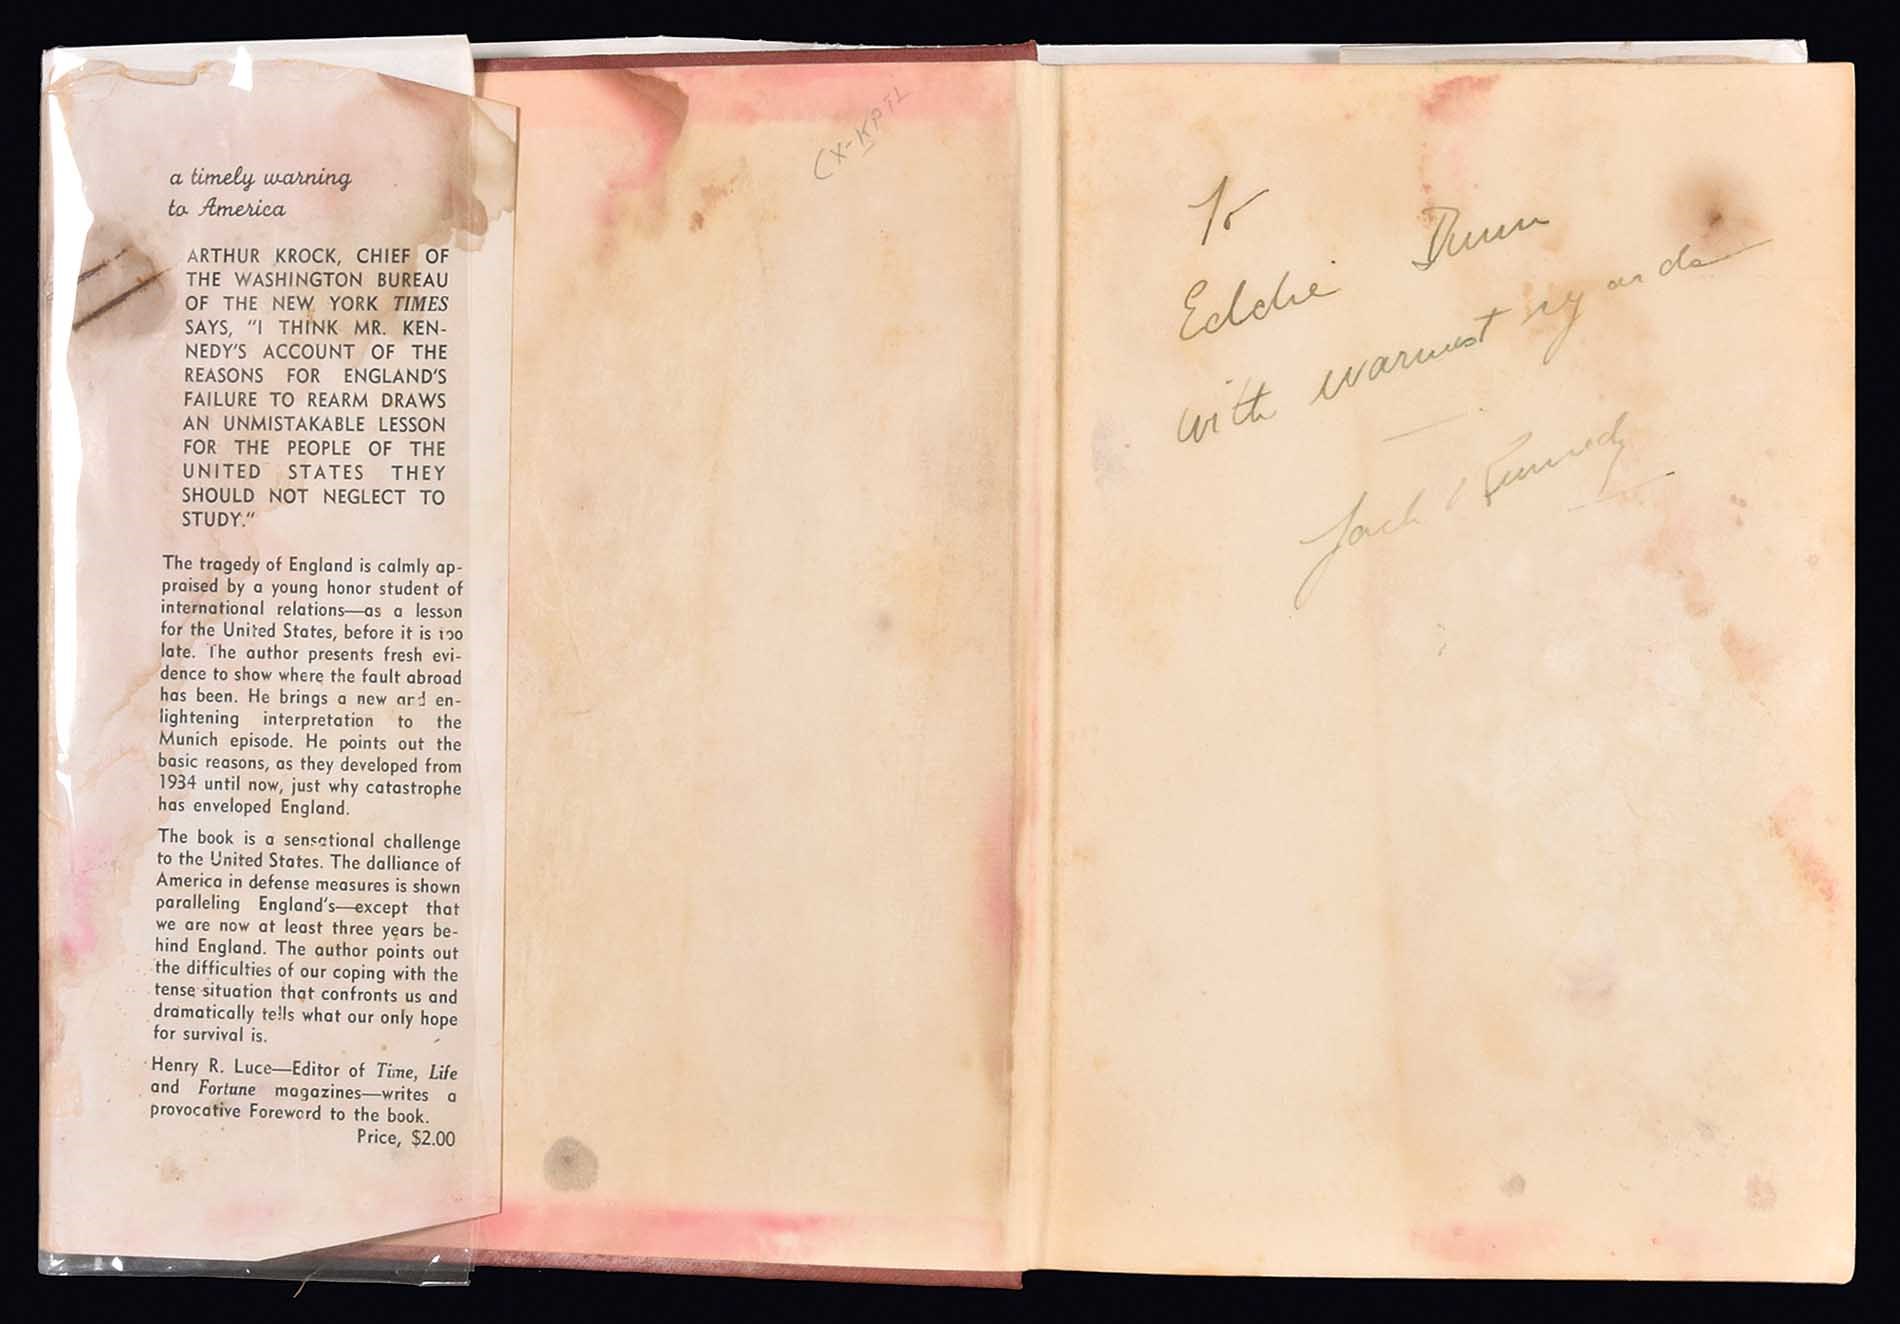 a timely warning
to America
ARTHUR KROCK, CHIEF OF
THE WASHINGTON BUREAU
OF THE NEW YORK TIMES
SAYS, "I THINK MR. KEN-
NEDY'S ACCOUNT OF THE
REASONS FOR ENGLAND'S
FAILURE TO REARM DRAWS
AN UNMISTAKABLE LESSON
FOR THE PEOPLE OF THE
UNITED STATES THEY
SHOULD NOT NEGLECT TO
STUDY."
The tragedy of England is calmly ap-
praised by a young honor student of
international relations—as a lesson
for the United States, before it is too
late. The author presents fresh evi-
dence to show where the fault abroad
has been. He brings a new and en-
lightening interpretation to the
Munich episode. He points out the
basic reasons, as they developed from
1934 until now, just why catastrophe
has enveloped England.
The book is a sensational challenge
to the United States. The dalliance of
America in defense measures is shown
paralleling England's—except that
we are now at least three years be-
hind England. The author points out
the difficulties of our coping with the
tense situation that confronts us and
dramatically tells what our only hope
for survival is.
Henry R. Luce—Editor of Time, Life
and Fortune magazines—writes a
provocative Foreword to the book.
Price, $2.00
To
Eddie Dunn
with warmest regards
Jack Kennedy